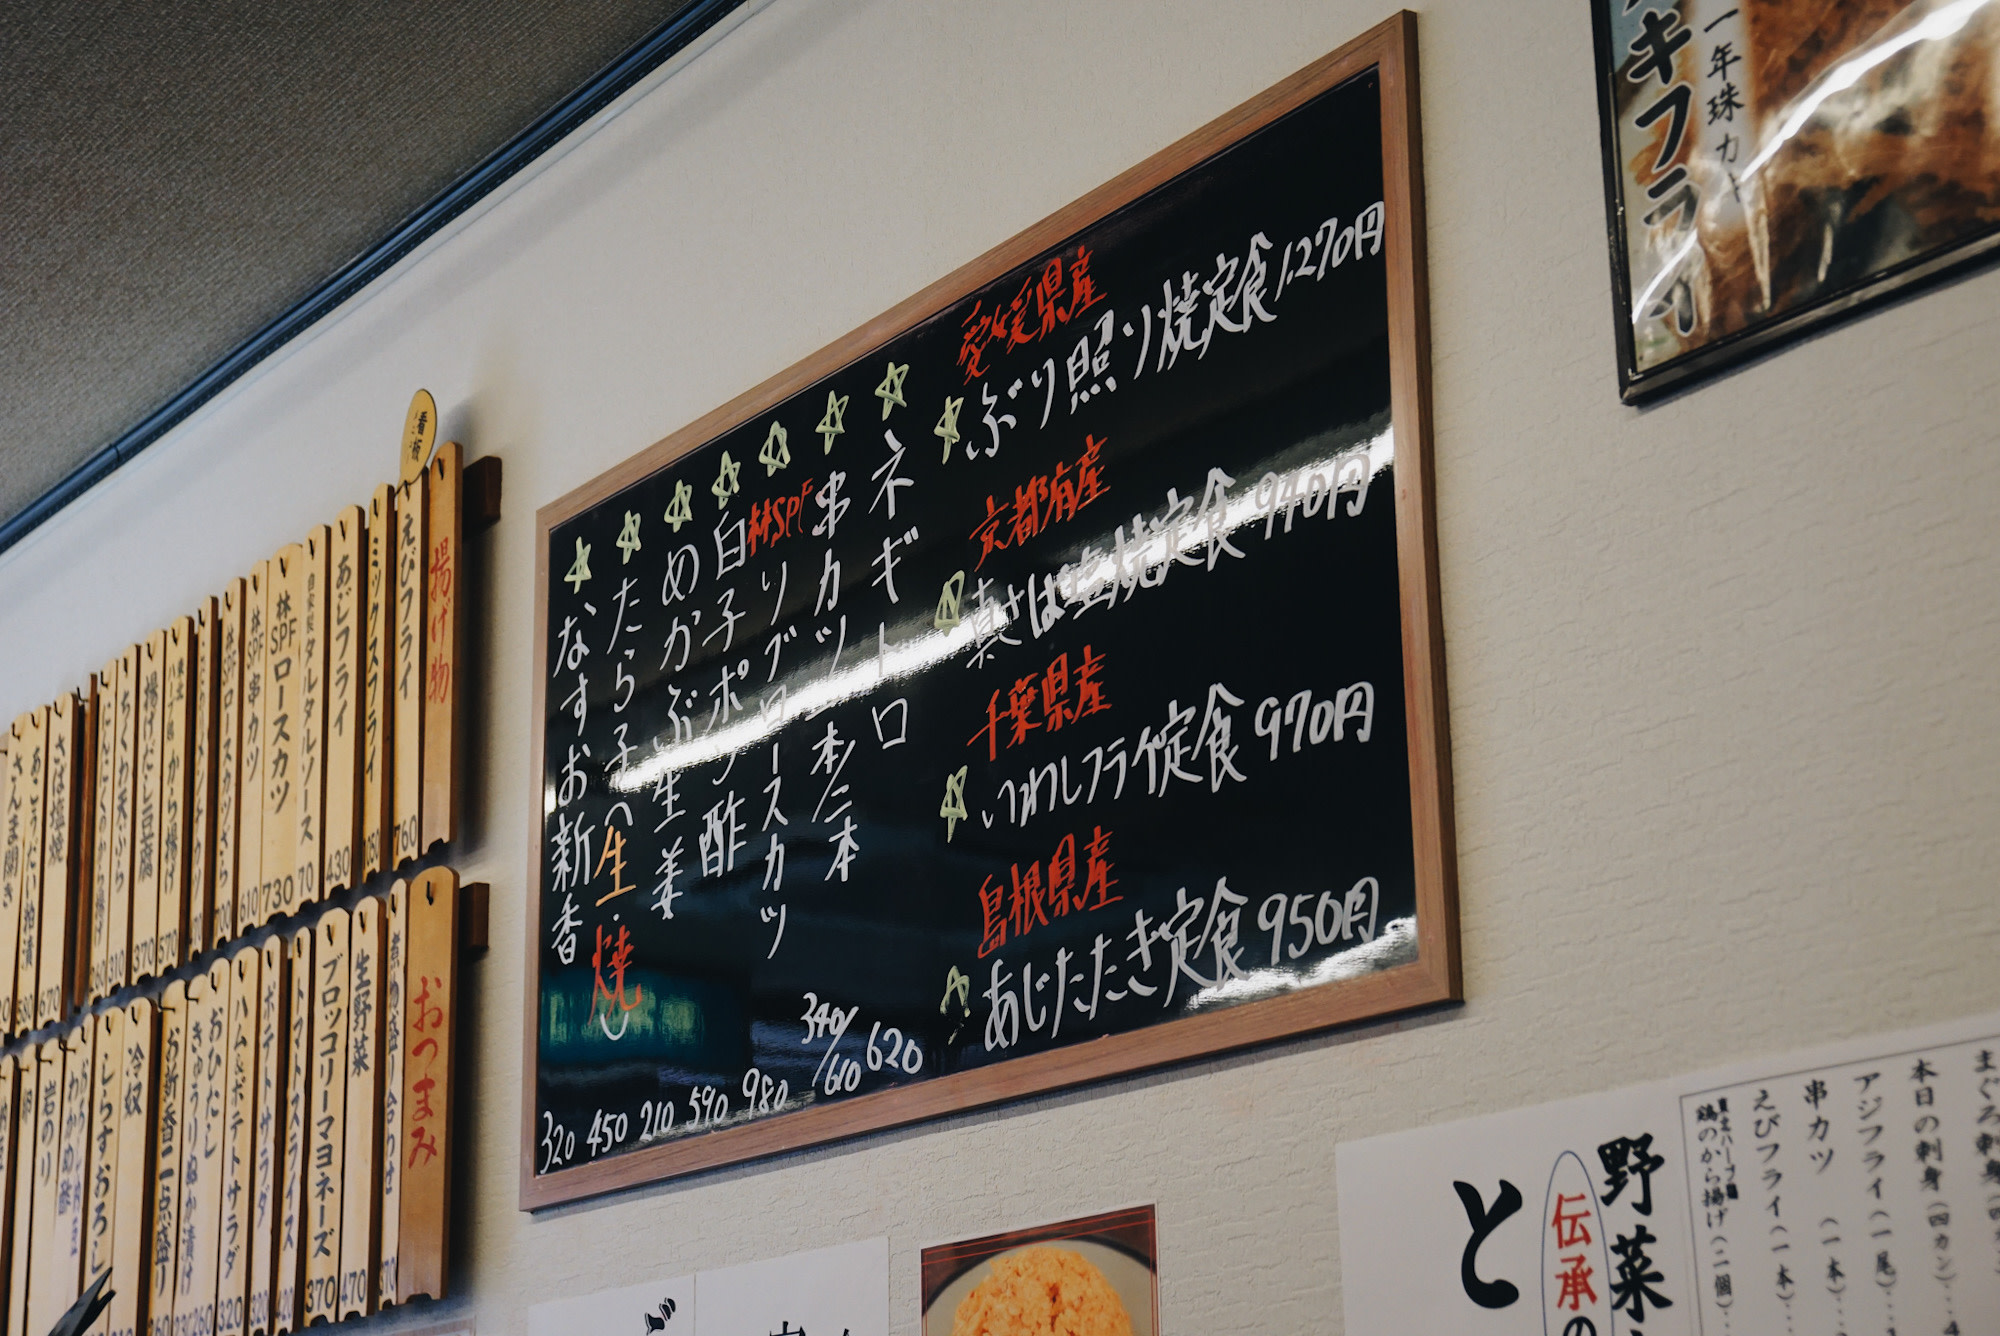 愛媛県産
ぶり照り焼定食 1,270円
京都府産
真さば塩焼定食 940円
千葉県産
いわしフライ定食 970円
島根県産
あじたたき定食 950円
ネギトロ 620
串カツ 一本/二本 340/610
林SPF
リブロースカツ 980
白子ポン酢 590
めかぶ生姜 210
たら子の生・焼 450
なすお新香 320
看板
揚げ物
えびフライ 760
ミックスフライ
あじフライ 430
自家製タルタルソース 70
林SPFロースカツ 730
林SPF串カツ 610
林SPFロースカツ 700
から揚げ 570
揚げだし豆腐 370
ちくわ天ぷら 310
にんにくのから揚げ 260
さば塩焼 670
あこうだい粕漬 580
さんま開き
おつまみ
煮物盛り合わせ 370
生野菜 470
ブロッコリーマヨネーズ 370
トマトスライス 420
ポテトサラダ 320
ハム&ポテトサラダ 320
おひたし 260
きゅうりぬか漬け
お新香二点盛り
冷奴
しらすおろし
わかめ酢
岩のり
キフライ
年珠
まぐろ刺身
本日の刺身(四カン)
アジフライ(一尾)
串カツ (一本)
えびフライ(一本)
鶏のから揚げ(二個)
野菜
伝承の
と